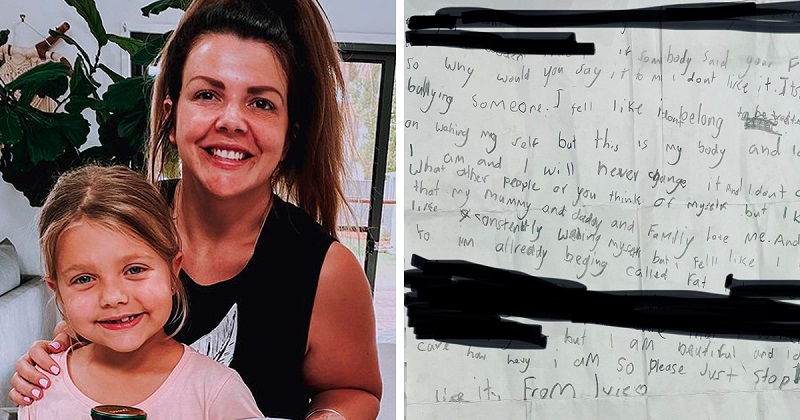 if sombody said your F
so why would you say it to m I dont like it. Its
bullying someone. I fell like I don belong
on wating my self but this is my body and
I am and I will never change it And I dont c
what other people or you think of myself but I k
that my mummy and daddy and Family love me. And
like constently wating myself but i fell like I
to im allready beging called Fat
but I am beautiful and i d
care how hevy i am so please Just stop
like it. From Ivie